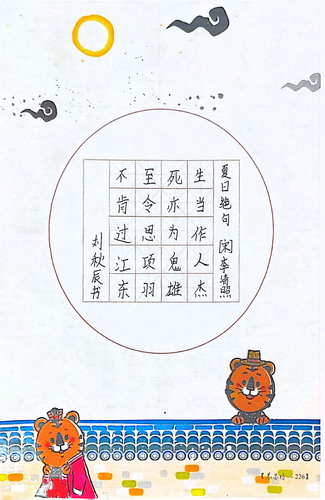 夏日绝句 [宋]李清照
生当作人杰
死亦为鬼雄
至今思项羽
不肯过江东
刘秋辰书